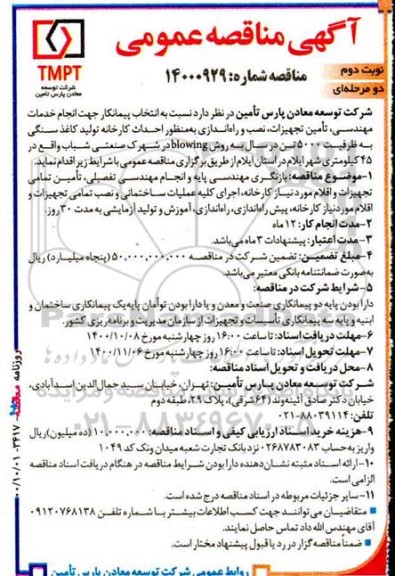 آگهی مناقصه عمومی
TMPT
شرکت توسعه
معادن پارس تأمین
نوبت دوم
دو مرحله‌ای
مناقصه شماره: ۱۴۰۰۰۹۲۹
شرکت توسعه معادن پارس تأمین در نظر دارد نسبت به انتخاب پیمانکار جهت انجام خدمات
مهندسی، تأمین تجهیزات، نصب و راه‌اندازی به‌منظور احداث کارخانه تولید کاغذ سنگی
به ظرفیت ۵۰۰۰ تن در سال به روش blowing در شهرک صنعتی شباب واقع در
۴۵ کیلومتری شهر ایلام در استان ایلام از طریق برگزاری مناقصه عمومی با شرایط زیر اقدام نماید.
۱-موضوع مناقصه: بازنگری مهندسی پایه و انجام مهندسی تفصیلی، تأمین تمامی
تجهیزات و اقلام مورد نیاز کارخانه، اجرای کلیه عملیات ساختمانی و نصب تمامی تجهیزات و
اقلام مورد نیاز کارخانه، پیش راه‌اندازی، راه‌اندازی، آموزش و تولید آزمایشی به مدت ۳۰ روز.
۲-مدت انجام کار: ۱۲ ماه
۳-مدت اعتبار: پیشنهادات ۳ ماه می‌باشد.
۴-مبلغ تضمین: تضمین شرکت در مناقصه ۵۰,۰۰۰,۰۰۰,۰۰۰ (پنجاه میلیارد) ریال
به‌صورت ضمانتنامه بانکی معتبر می‌باشد.
۵- شرایط شرکت در مناقصه:
دارا بودن پایه دو پیمانکاری صنعت و معدن و یا دارا بودن توأمان پایه یک پیمانکاری ساختمان و
ابنیه و پایه سه پیمانکاری تأسیسات و تجهیزات از سازمان مدیریت و برنامه‌ریزی کشور.
۶-مهلت دریافت اسناد: تا ساعت ۱۶:۰۰ روز چهارشنبه مورخ ۱۴۰۰/۱۰/۰۸
۷-مهلت تحویل اسناد: تا ساعت ۱۶:۰۰ روز چهارشنبه مورخ ۱۴۰۰/۱۱/۰۶
۸-محل دریافت و تحویل اسناد مناقصه:
شرکت توسعه معادن پارس تأمین: تهران، خیابان سید جمال‌الدین اسدآبادی،
خیابان دکتر صادق آئینه‌وند (۶۴ شرقی)، پلاک ۲۹، طبقه دوم
تلفن: ۸۸۰۳۹۱۱۴-۰۲۱
۹-هزینه خرید اسناد ارزیابی کیفی و اسناد مناقصه: ۱۰,۰۰۰,۰۰۰ (ده میلیون) ریال
واریز به حساب ۰۲۶۸۷۸۳۰۸۳ نزد بانک تجارت شعبه میدان ونک کد ۱۰۴۹
۱۰-ارائه اسناد مثبته نشان‌دهنده دارا بودن شرایط مناقصه در هنگام دریافت اسناد مناقصه
الزامی است.
۱۱-سایر جزئیات مربوطه در اسناد مناقصه درج شده است.
متقاضیان می‌توانند جهت کسب اطلاعات بیشتر با شماره تلفن ۰۹۱۲۰۷۶۸۱۳۸
آقای مهندس الله داد تماس حاصل نمایند.
ضمناً مناقصه‌گزار در رد یا قبول پیشنهاد مختار است.
روابط عمومی شرکت توسعه معادن پارس تأمین
۰۲۱-۸۸۳۴۹۶۷۰